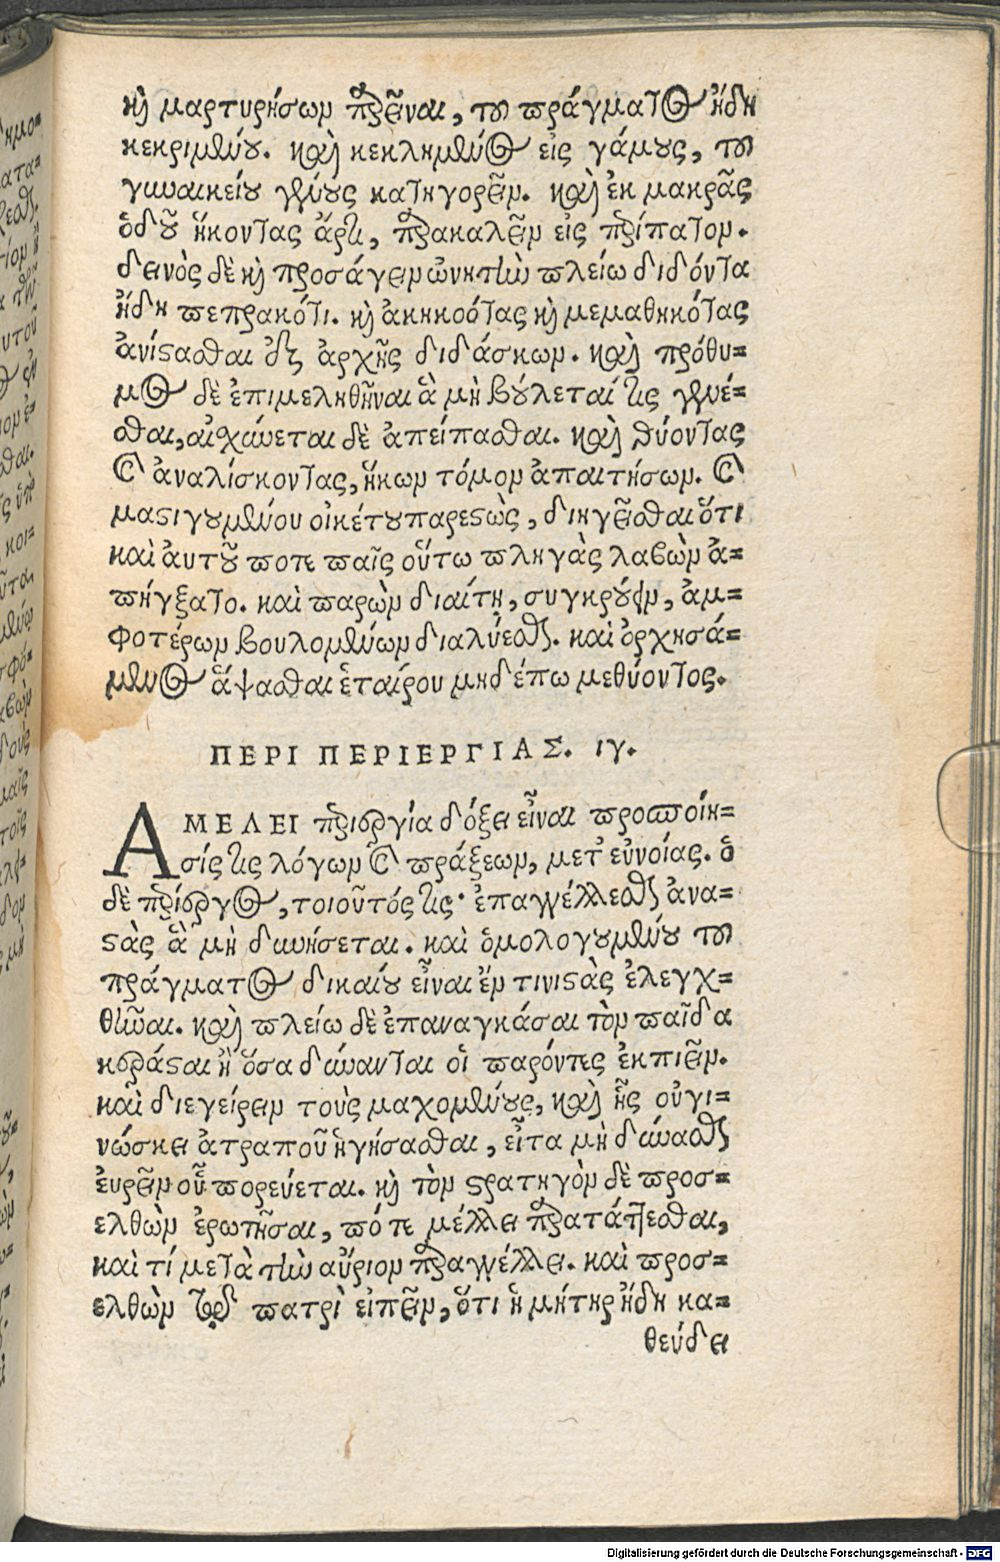 καὶ μαρτυρήσων παρεῖναι, τοῦ πράγματος ἤδη
κεκριμένου. καὶ κεκλημένος εἰς γάμους, τοῦ
γυναικείου γένους κατηγορεῖν. καὶ ἐκ μακρᾶς
ὁδοῦ ἥκοντας ἄρτι, παρακαλεῖν εἰς περίπατον.
δεινὸς δὲ καὶ προσάγειν ὠνητὴν πλείω διδόντα
ἤδη πεπρακότι. καὶ ἀκηκοότας καὶ μεμαθηκότας
ἀνίστασθαι ἐξ ἀρχῆς διδάσκων. καὶ πρόθυ=
μος δὲ ἐπιμεληθῆναι ἃ μὴ βούλεταί τις γενέ=
σθαι, αἰσχύνεται δὲ ἀπείπασθαι. καὶ θύοντας
καὶ ἀναλίσκοντας, ἥκων τόμον ἀπαιτήσων. καὶ
μαστιγουμένου οἰκέτου παρεστὼς, διηγεῖσθαι ὅτι
καὶ ἀυτοῦ ποτε παῖς οὕτω πληγὰς λαβὼν ἀ=
πήγξατο. καὶ παρὼν διαίτῃ, συγκρούειν, ἀμ=
φοτέρων βουλομένων διαλύεσθαι. καὶ ὀρχησά=
μενος ἅψασθαι ἑταίρου μηδέπω μεθύοντος.
ΠΕΡΙ ΠΕΡΙΕΡΓΙΑΣ. ιγ.
ΑΜΕΛΕΙ περιεργία δόξει εἶναι προσποίη=
σίς τις λόγων καὶ πράξεων, μετ' εὐνοίας. ὁ
δὲ περίεργος, τοιοῦτός τις· ἐπαγγέλλεσθαι ἀνα=
στὰς ἃ μὴ δυνήσεται. καὶ ὁμολογουμένου τοῦ
πράγματος δικαίου εἶναι ἔν τινι στὰς ἐλεγχ=
θῆναι. καὶ πλείω δὲ ἐπαναγκάσαι τὸν παῖδα
κεράσαι ἢ ὅσα δύνανται οἱ παρόντες ἐκπιεῖν.
καὶ διεγείρειν τοὺς μαχομένους, καὶ ἧς οὐ γι=
νώσκει ἀτραποῦ ἡγήσασθαι, εἶτα μὴ δύνασθαι
ἑυρεῖν οὗ πορεύεται. καὶ τὸν στρατηγὸν δὲ προσ=
ελθὼν ἐρωτῆσαι, πότε μέλλει παρατάττεσθαι,
καὶ τί μετὰ τὴν αὔριον παραγγέλλει. καὶ προσ=
ελθὼν τῷ πατρὶ εἰπεῖν, ὅτι ἡ μήτηρ ἤδη κα=
θεύδει
Digitalisierung gefördert durch die Deutsche Forschungsgemeinschaft - DFG